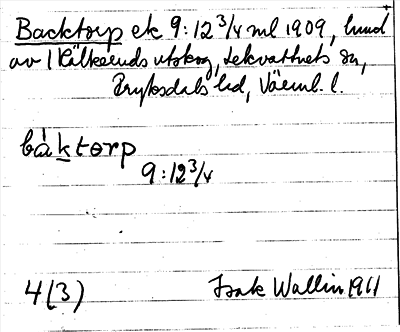 Backtorp ek 9:12 3/4 ml 1909, lund
av Kälkerudsutskog, Lekvattnets sn,
Fryksdals hd, Värml. l.
båktorp
9:12 3/4
4(3)
Isak Wallin 1911